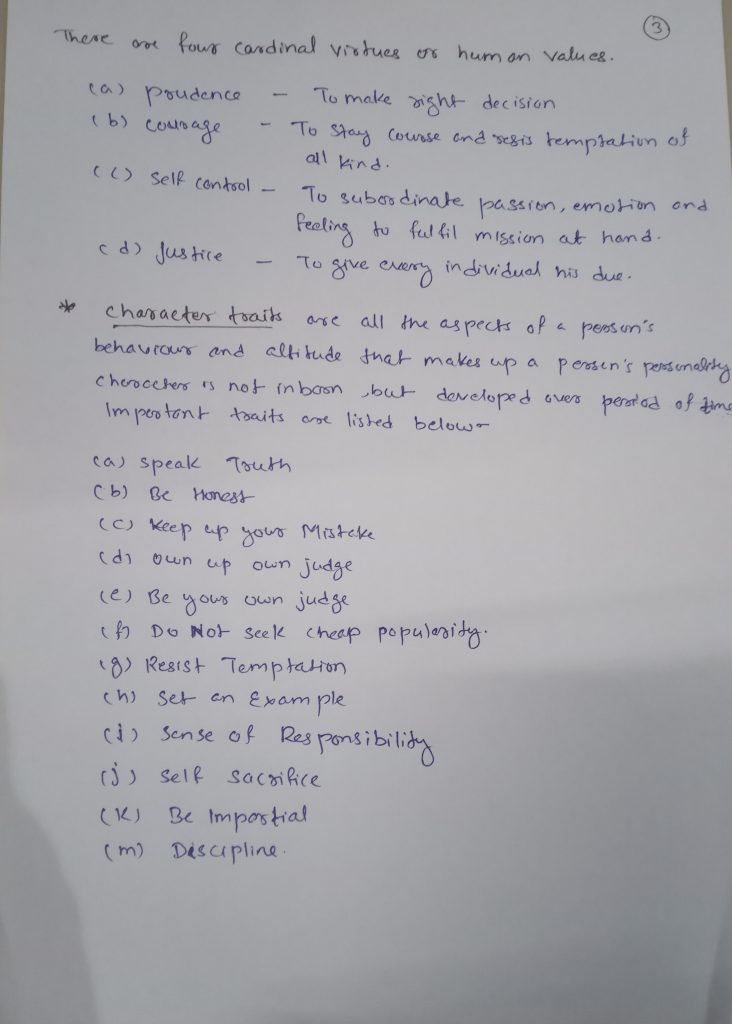 3
There are four cardinal virtues or human values.
(a) prudence - To make right decision
(b) courage - To stay course and resis temptation of
all kind.
(c) Self control - To subordinate passion, emotion and
feeling to fulfil mission at hand.
(d) Justice - To give every individual his due.
* Character traits are all the aspects of a person's
behaviour and altitude that makes up a person's personality
cheroceter is not inborn, but developed over period of time
Important traits are listed below-
(a) speak Truth
(b) Be Honest
(c) Keep up your Mistake
(d) own up own judge
(e) Be your own judge
(f) Do Not seek cheap popularity.
(g) Resist Temptation
(h) Set an Example
(i) Sense of Responsibility
(j) Self sacrifice
(k) Be Impartial
(m) Discipline.